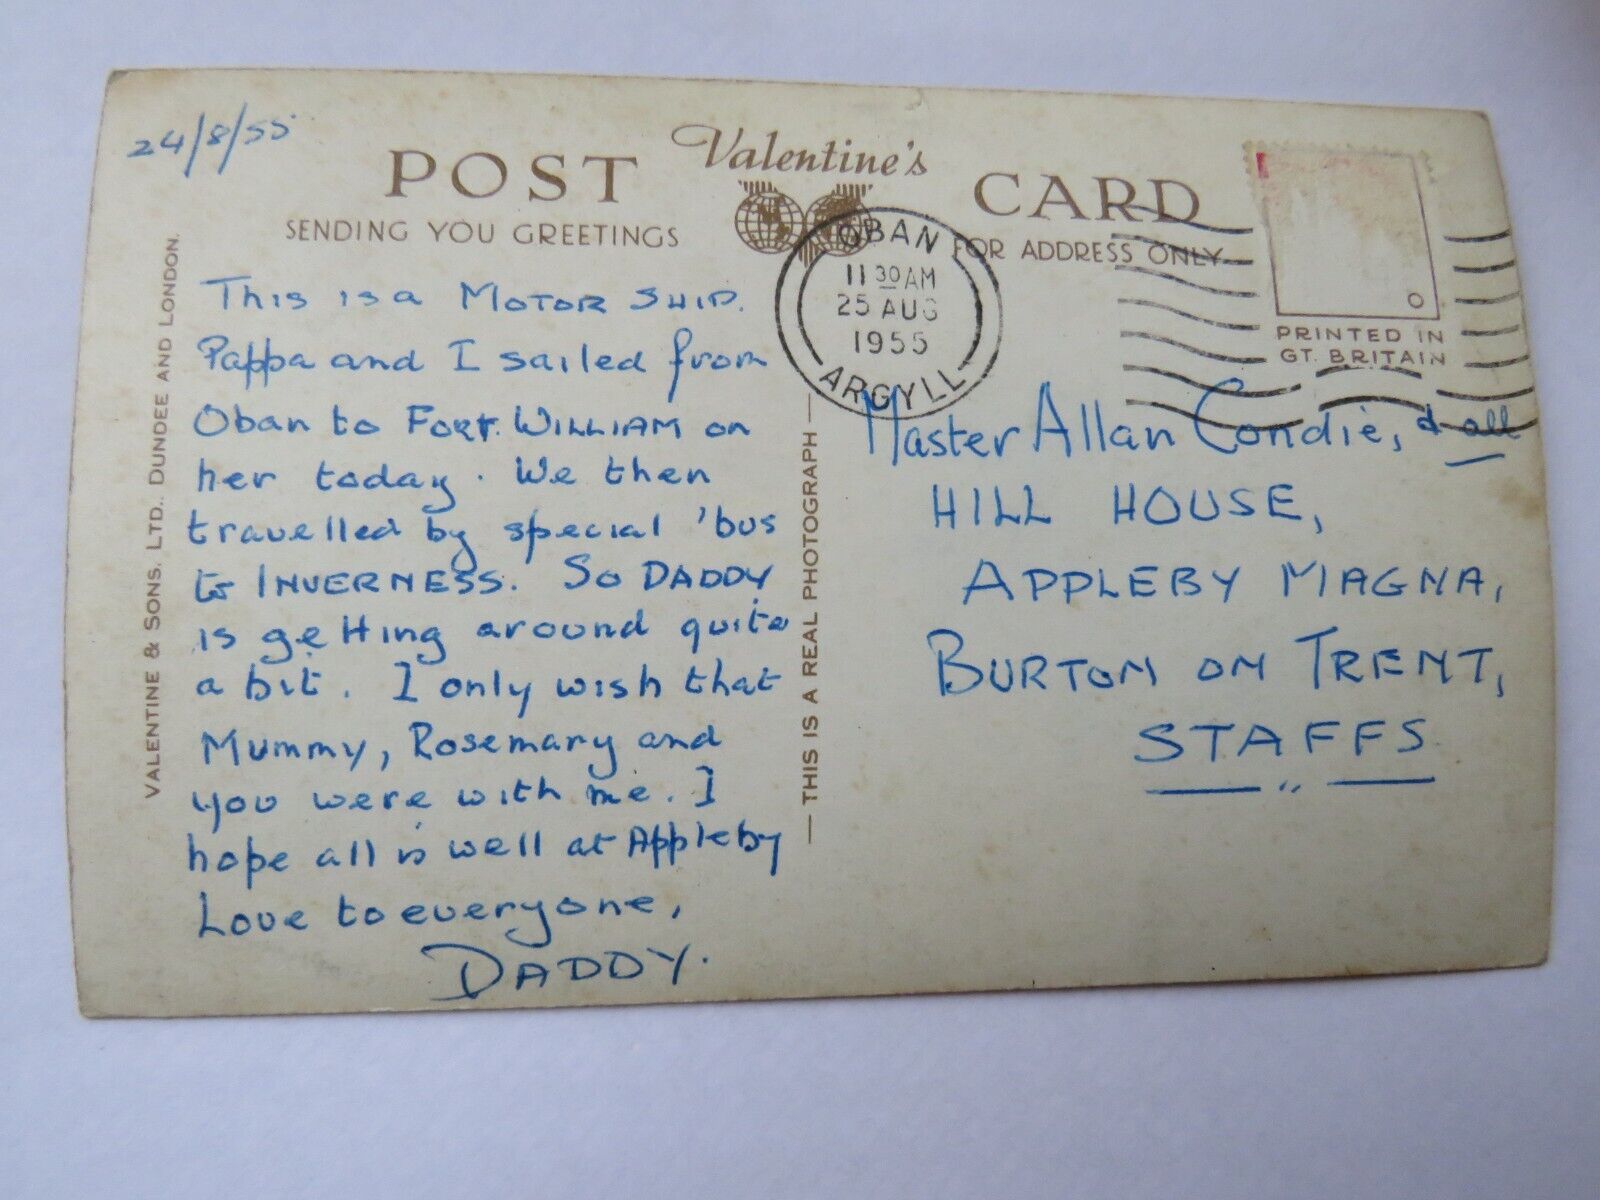 24/8/55
POST Valentine's CARD
SENDING YOU GREETINGS
FOR ADDRESS ONLY
OBAN
11 30 AM
25 AUG
1955
ARGYLL
PRINTED IN
GT. BRITAIN
VALENTINE & SONS, LTD., DUNDEE AND LONDON.
This is a MOTOR SHIP.
Pappa and I sailed from
Oban to FORT WILLIAM on
her today. We then
travelled by special 'bus
to INVERNESS. SO DADDY
is getting around quite
a bit. I only wish that
Mummy, Rosemary and
you were with me. I
hope all is well at Appleby
Love to everyone,
DADDY.
— THIS IS A REAL PHOTOGRAPH —
Master Allan Condie, & all
HILL HOUSE,
APPLEBY MAGNA,
BURTON ON TRENT,
STAFFS